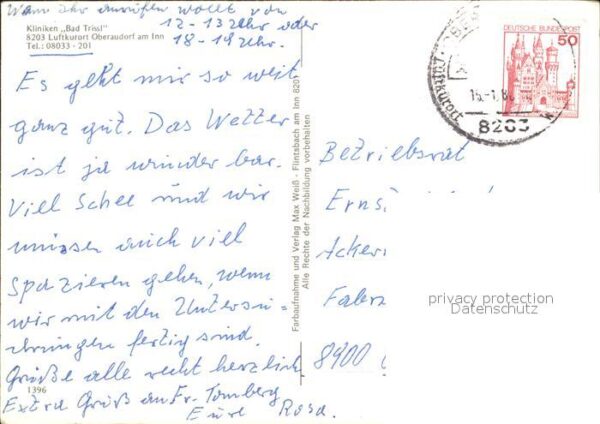 Wann Ihr anrufen wollt von
12-13 Uhr oder
18-19 Uhr.
Kliniken „Bad Trissl"
8203 Luftkurort Oberaudorf am Inn
Tel.: 08033 - 201
Es geht mir so weit
ganz gut. Das Wetter
ist ja wunder bar.
Viel Schee und wir
müssen auch viel
Spazieren gehen, wenn
wir mit den Untersu-
chungen fertig sind.
Grüße alle recht herzlich
1396
Extra Gruß an Fr. Tomberg
Eure Rosa.
Farbaufnahme und Verlag Max Weiß - Flintsbach am Inn 8201
Alle Rechte der Nachbildung vorbehalten
DEUTSCHE BUNDESPOST
50
Luftkurort
8203
Betriebsrat
Erns
Acker
Fabr
8900
privacy protection
Datenschutz